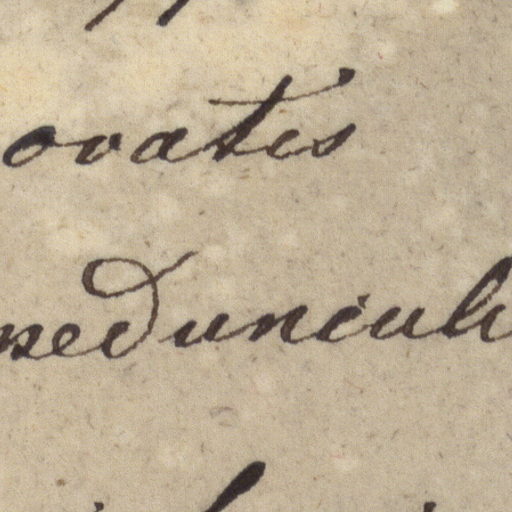 ovatis
peduncul